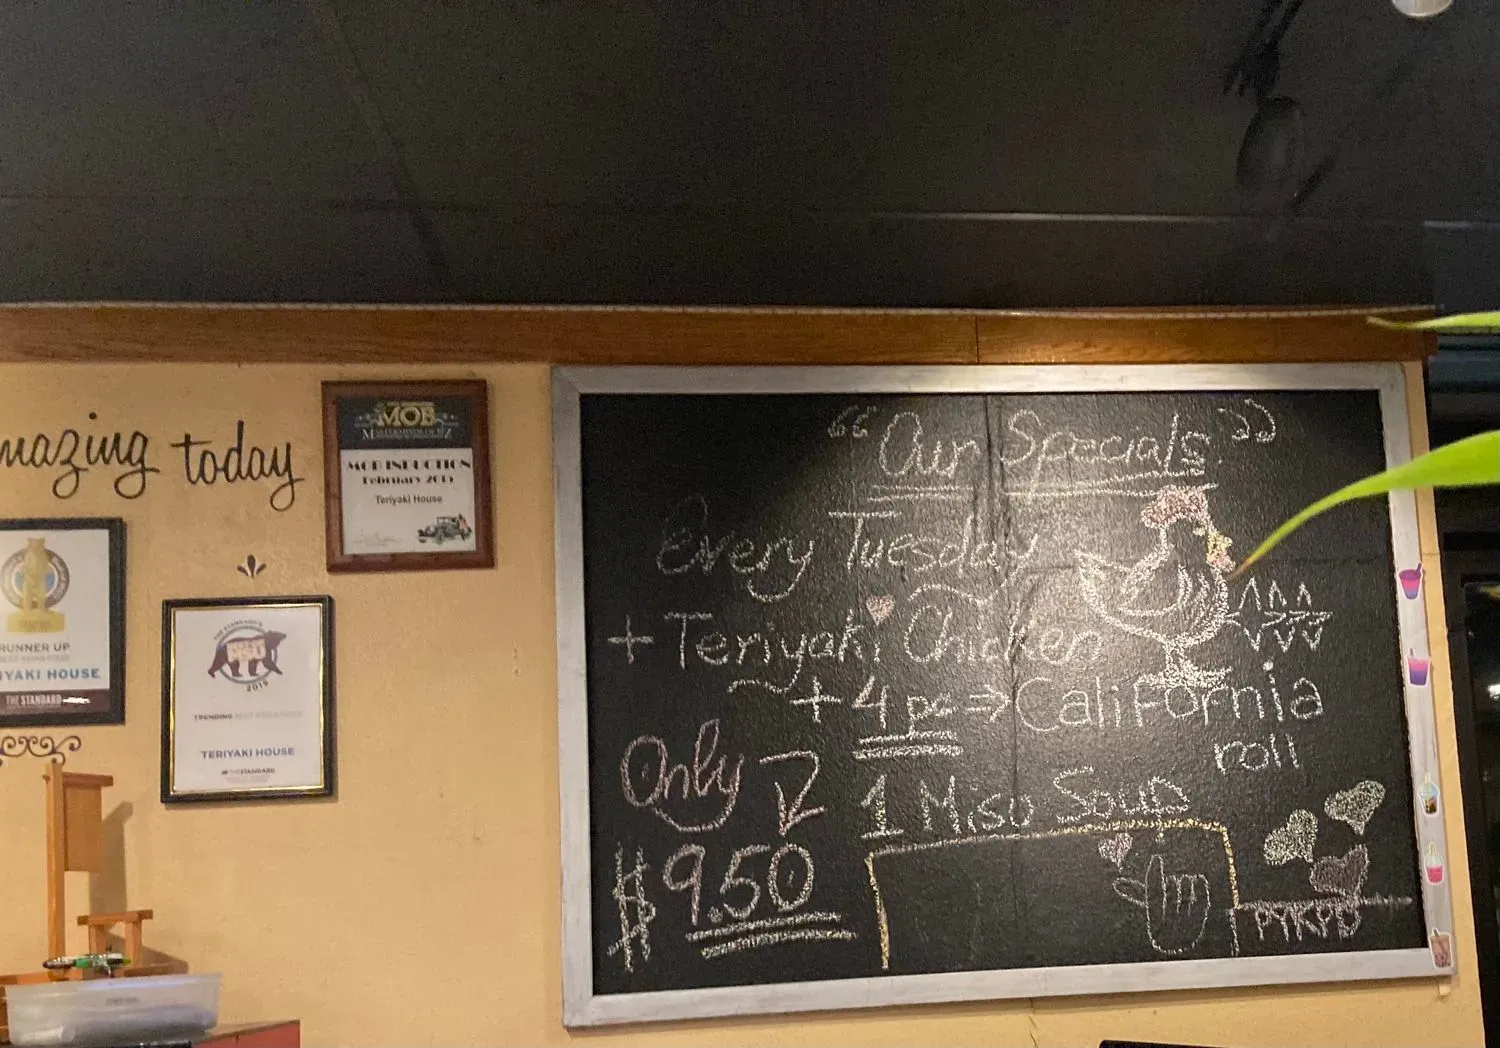 mazing today
MOB
MOB INDUCTION
February 2015
Teriyaki House
RUNNER UP
IYAKI HOUSE
THE STANDARD
2019
TRENDING
TERIYAKI HOUSE
THE STANDARD
“Our Specials”
Every Tuesday
+ Teriyaki Chicken
+ 4 pc => California
roll
Only
1 Miso Soup
$9.50